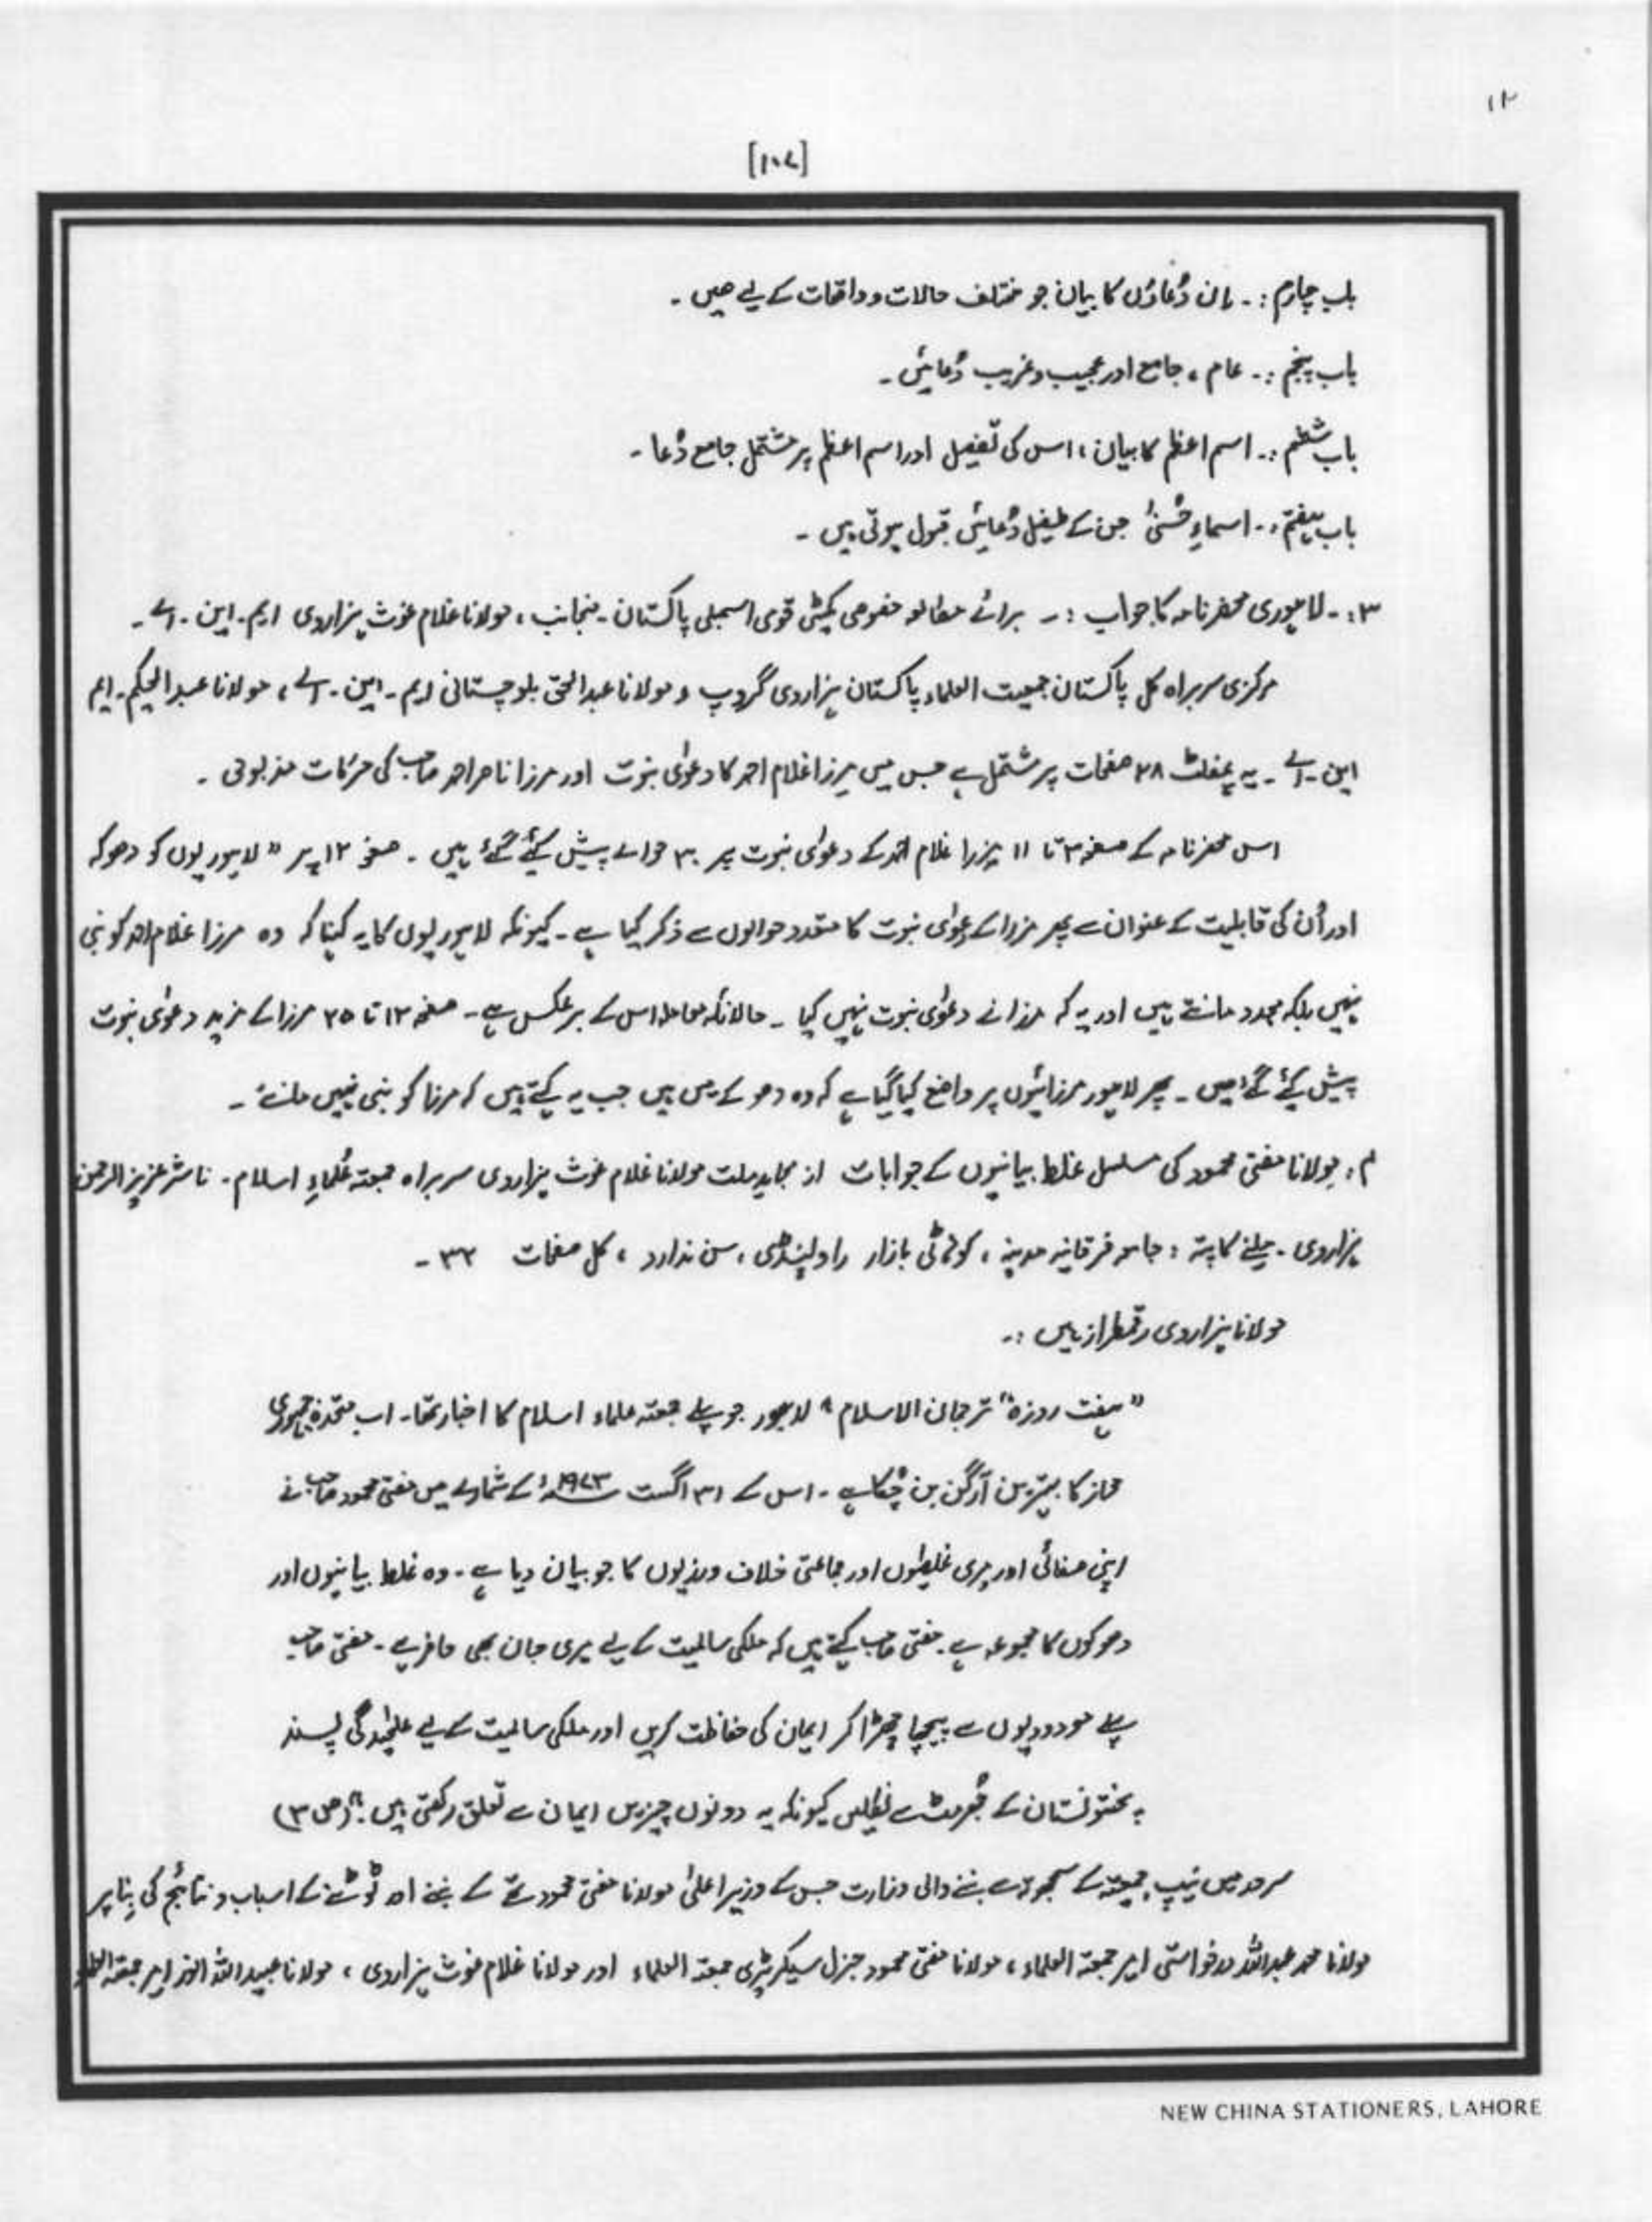 ۱۲
[۱۰۷]
باب چہارم :۔ ان دُعاؤں کا بیان جو مختلف حالات و واقعات کے لیے ھیں ۔
باب پنجم :۔ عام ، جامع اور عجیب و غریب دُعائیں ۔
باب ششم :۔ اسم اعظم کا بیان ، اس کی تفصیل اور اسم اعظم پر مشتمل جامع دُعا ۔
باب ہفتم :۔ اسماءِ حُسنیٰ جن کے طفیل دُعائیں قبول ہوتی ہیں ۔
۳ :۔ لاہوری محضرنامہ کا جواب :۔ برائے مطالعہ خصوصی کمیٹی قومی اسمبلی پاکستان ۔ منجانب ، مولانا غلام غوث ہزاروی ایم ۔ این ۔ اے ۔
مرکزی سربراہ کل پاکستان جمیعت العلماء پاکستان ہزاروی گروپ و مولانا عبدالحق بلوچستانی ایم ۔ این ۔ اے ، مولانا عبدالحکیم ۔ ایم
این ۔ اے ۔ یہ پمفلٹ ۲۸ صفحات پر مشتمل ہے جس میں مرزا غلام احمد کا دعوٰی نبوت اور مرزا ناصر احمد صاحب کی حرکات مذبوحی ۔
اس محضرنامہ کے صفحہ ۳ تا ۱۱ مرزا غلام احمد کے دعوٰی نبوت پر ۳۰ حوالے پیش کیٔے گیٔے ہیں ۔ صفحہ ۱۲ پر " لاہوریوں کو دھوکہ
اور اُن کی قابلیت کے عنوان سے پھر مرزا کے دعوٰی نبوت کا متعدد حوالوں سے ذکر کیا ہے ۔ کیونکہ لاہوریوں کا یہ کہنا کہ وہ مرزا غلام احمد کو نبی
نہیں بلکہ مجدد مانتے ہیں اور یہ کہ مرزا نے دعوٰی نبوت نہیں کیا ۔ حالانکہ معاملہ اس کے برعکس ہے ۔ صفحہ ۱۲ تا ۲۵ مرزا کے مزید دعوٰی نبوت
پیش کیٔے گیٔے ھیں ۔ پھر لاہور مرزائیوں پر واضح کیا گیا ہے کہ وہ دھوکے میں ہیں جب یہ کہتے ہیں کہ مرزا کو نبی نہیں مانتے ۔
۴ : مولانا مفتی محمود کی مسلسل غلط بیانیوں کے جوابات از مجاہد ملت مولانا غلام غوث ہزاروی سربراہ جمعتہ عُلماءِ اسلام ۔ ناشر عزیز الرحمٰن
ہزاروی ۔ ملنے کا پتہ : جامعہ فرقانیہ مدینہ ، کوہاٹی بازار راولپنڈی ، سن ندارد ، کل صفحات ۳۲ ۔
مولانا ہزاروی رقمطراز ہیں :۔
" ہفت روزہ " ترجمان الاسلام " لاہور جو پہلے جمعتہ علماء اسلام کا اخبار تھا ۔ اب متحدہ جمہوری
محاذ کا بہترین آرگن بن چُکا ہے ۔ اس کے ۳۱ اگست ۱۹۷۳ء کے شمارے میں مفتی محمود صاحب نے
اپنی صفائی اور میری غلطیوں اور جماعتی خلاف ورزیوں کا جو بیان دیا ہے ۔ وہ غلط بیانیوں اور
دھوکوں کا مجموعہ ہے ۔ مفتی صاحب کہتے ہیں کہ ملکی سالمیت کے لیے میری جان بھی حاضر ہے ۔ مفتی صاحب
پہلے مودودیوں سے پیچھا چھڑا کر ایمان کی حفاظت کریں اور ملکی سالمیت کے لیے علیحٰدگی پسند
پختونستان کے جُھرمٹ سے نکلیں کیونکہ یہ دونوں چیزیں ایمان سے تعلق رکھتی ہیں ۔" (ص ۳)
سرحد میں نیپ جمیعتہ کے سمجھوتہ سے بننے والی وزارت جس کے وزیر اعلیٰ مولانا مفتی محمود تھے کے بننے اور ٹوٹنے کے اسباب و نتائج کی بنا پر
مولانا محمد عبداللّٰہ درخواستی امیر جمعتہ العلماء ، مولانا مفتی محمود جنرل سیکرٹری جمعتہ العلماء اور مولانا غلام غوث ہزاروی ، مولانا عبیداللّٰہ انور امیر جمعتہ العلماء
NEW CHINA STATIONERS, LAHORE